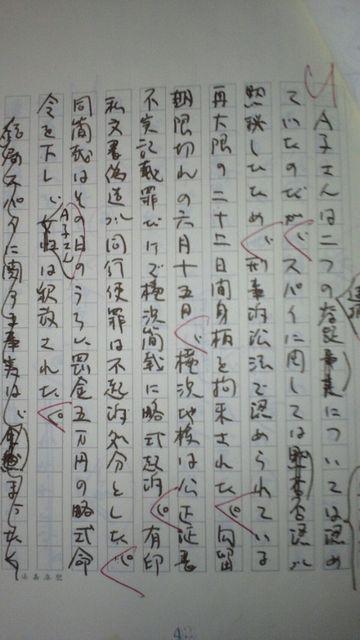 A子さんは二つの容疑については認め
ていたのだが、スパイに関しては
黙秘したため、刑事訴訟法で認められている
再大限の二十二日間身柄を拘束された。勾留
期限切れの六月十五日、横浜地検は公正証書
不実記載罪だけで横浜簡裁に略式起訴。有印
私文書偽造、同行使罪は不起訴処分とした。
同簡裁はその日のうちに罰金五万円の略式命
令を下し、A子さんは釈放された。
結局スパイに関する事実は、まったく